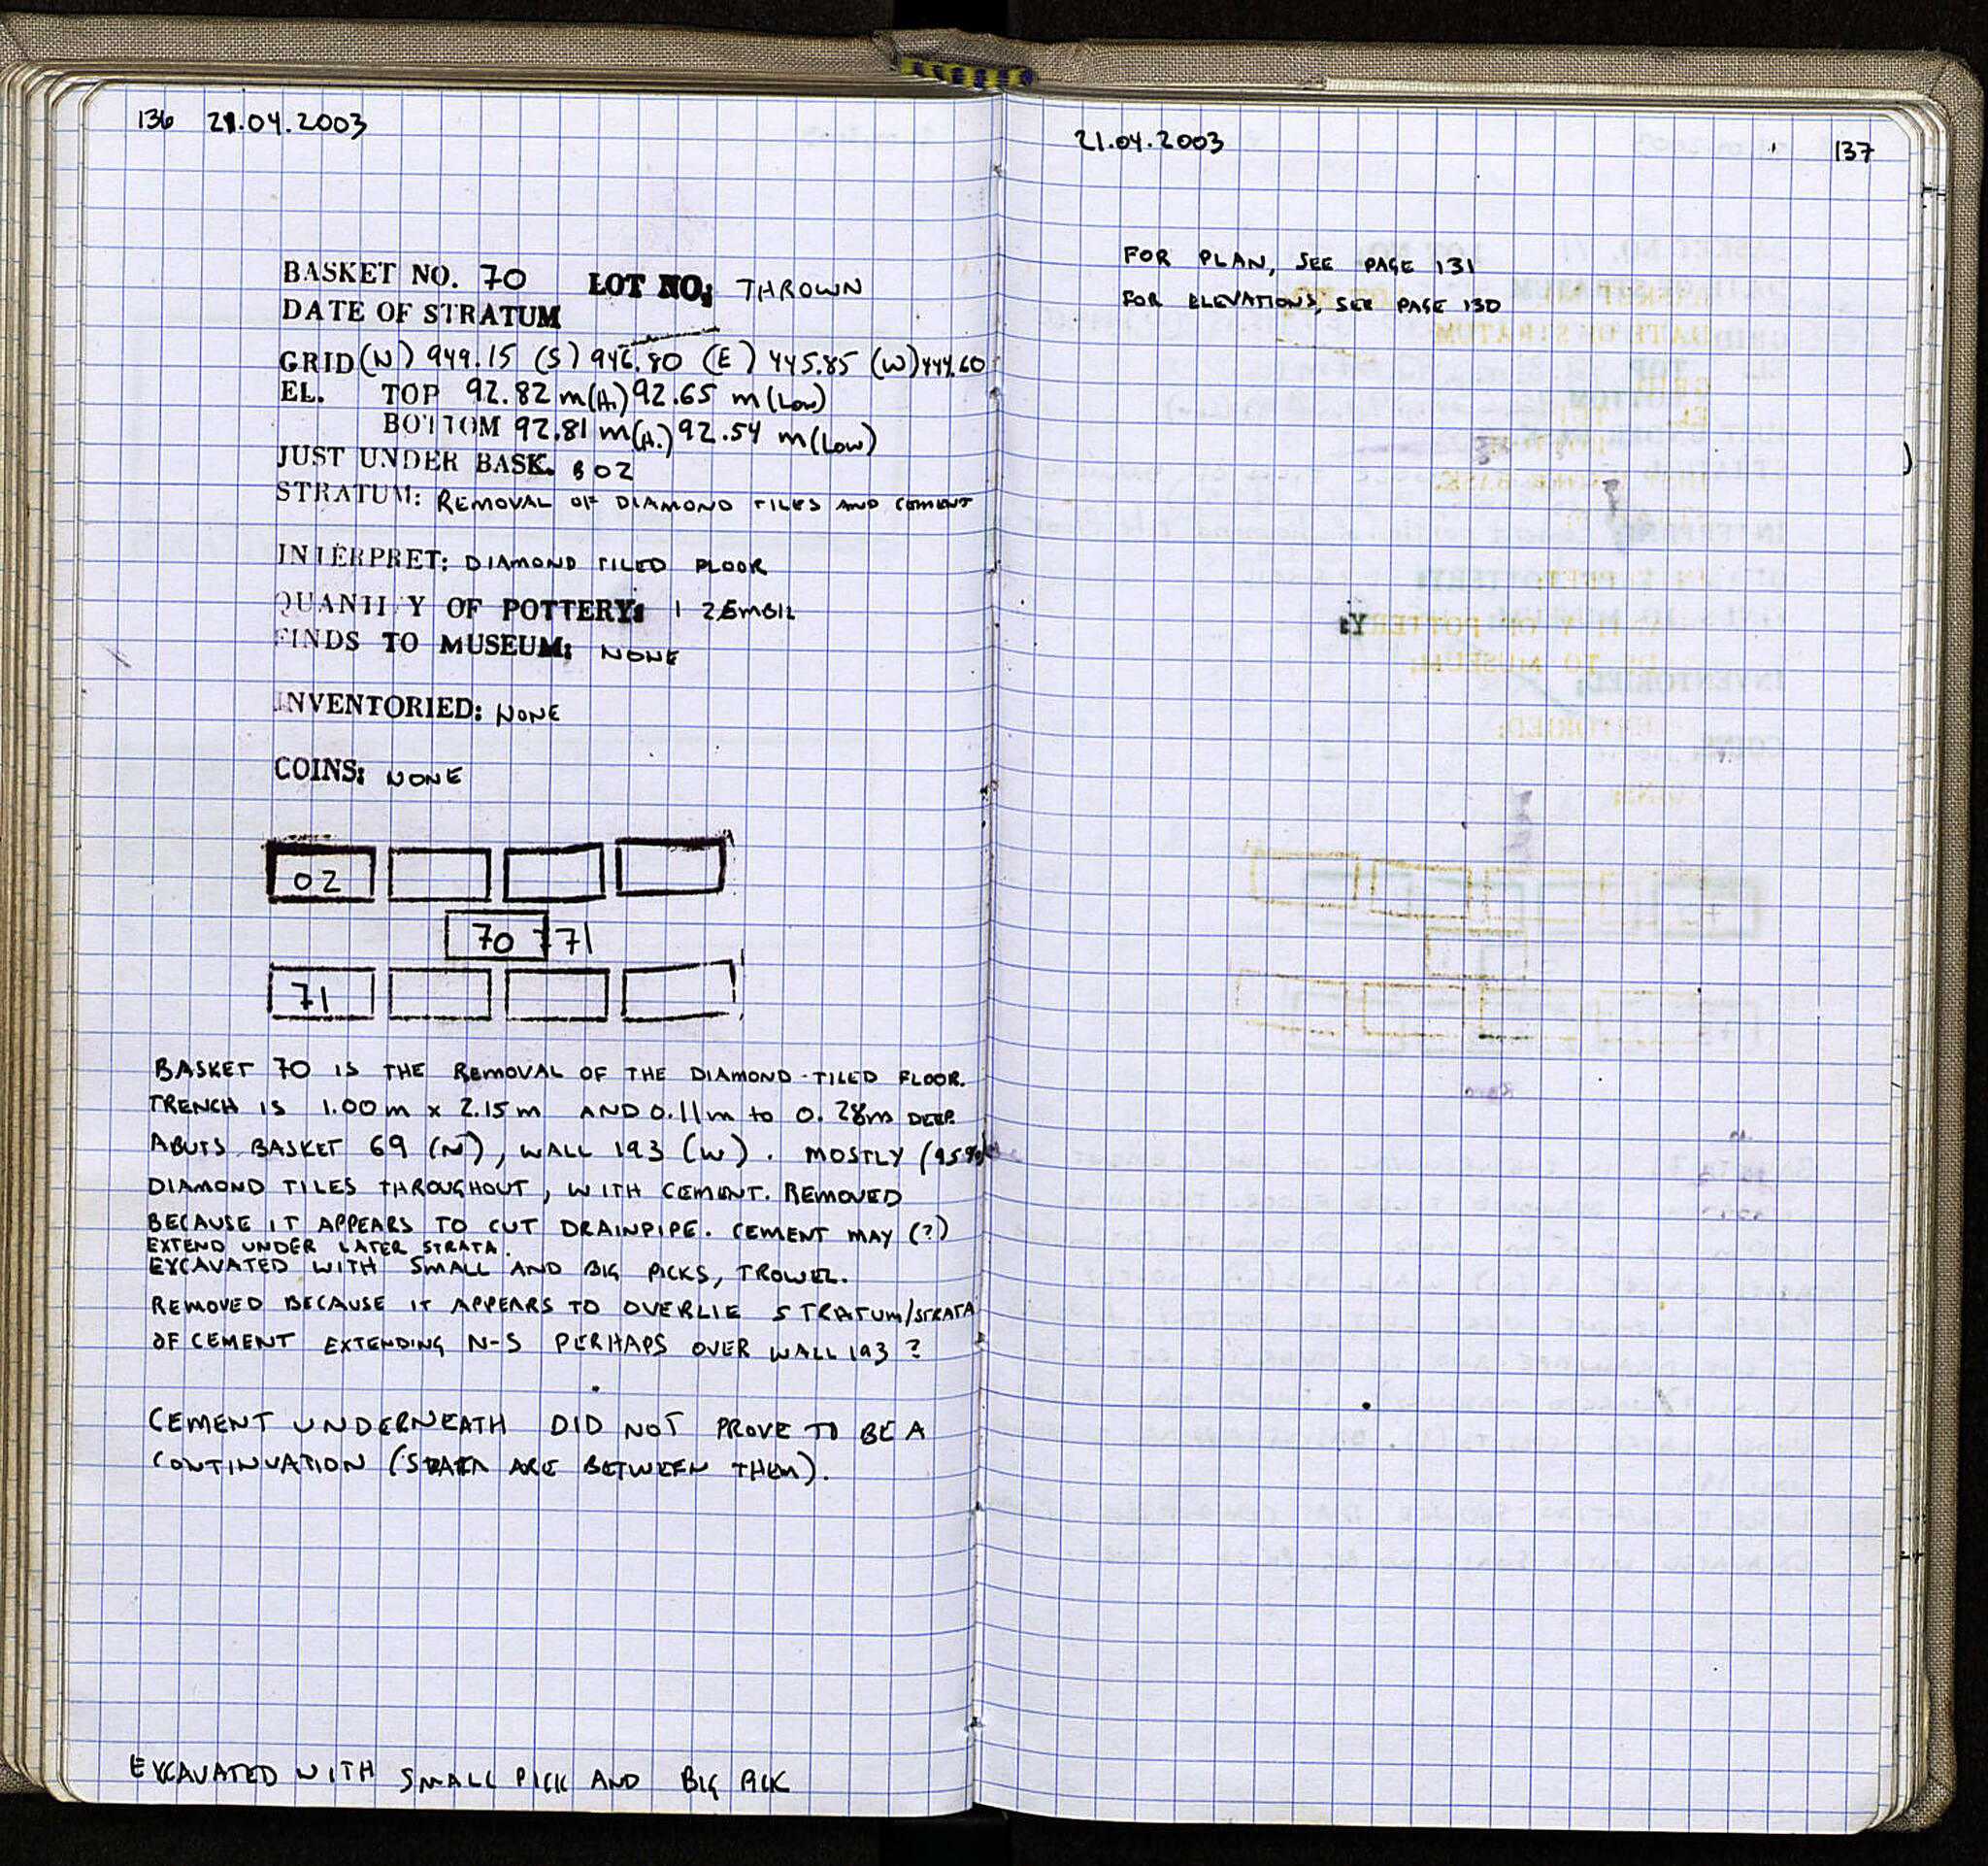 136 21.04.2003
BASKET NO. 70 LOT NO: THROWN
DATE OF STRATUM
GRID (N) 949.15 (S) 946.80 (E) 445.85 (W) 444.60
EL. TOP 92.82 m(H.) 92.65 m(LOW)
BOTTOM 92.81 m(H.) 92.54 m(LOW)
JUST UNDER BASK. B 02
STRATUM: REMOVAL OF DIAMOND TILES AND CEMENT
INTERPRET: DIAMOND TILED FLOOR
QUANTITY OF POTTERY: 1 ZEMBIL
FINDS TO MUSEUM: NONE
INVENTORIED: NONE
COINS: NONE
02
70 71
71
BASKET 70 IS THE REMOVAL OF THE DIAMOND-TILED FLOOR.
TRENCH IS 1.00 m x 2.15 m AND 0.11m to 0.28m DEEP.
ABUTS BASKET 69 (N), WALL 193 (W). MOSTLY (95%)
DIAMOND TILES THROUGHOUT, WITH CEMENT. REMOVED
BECAUSE IT APPEARS TO CUT DRAINPIPE. CEMENT MAY (?)
EXTEND UNDER LATER STRATA.
EXCAVATED WITH SMALL AND BIG PICKS, TROWEL.
REMOVED BECAUSE IT APPEARS TO OVERLIE STRATUM/STRATA
OF CEMENT EXTENDING N-S PERHAPS OVER WALL 193?
CEMENT UNDERNEATH DID NOT PROVE TO BE A
CONTINUATION (STRATA ARE BETWEEN THEM).
EXCAVATED WITH SMALL PICK AND BIG PICK
21.04.2003 137
FOR PLAN, SEE PAGE 131
FOR ELEVATIONS, SEE PAGE 130